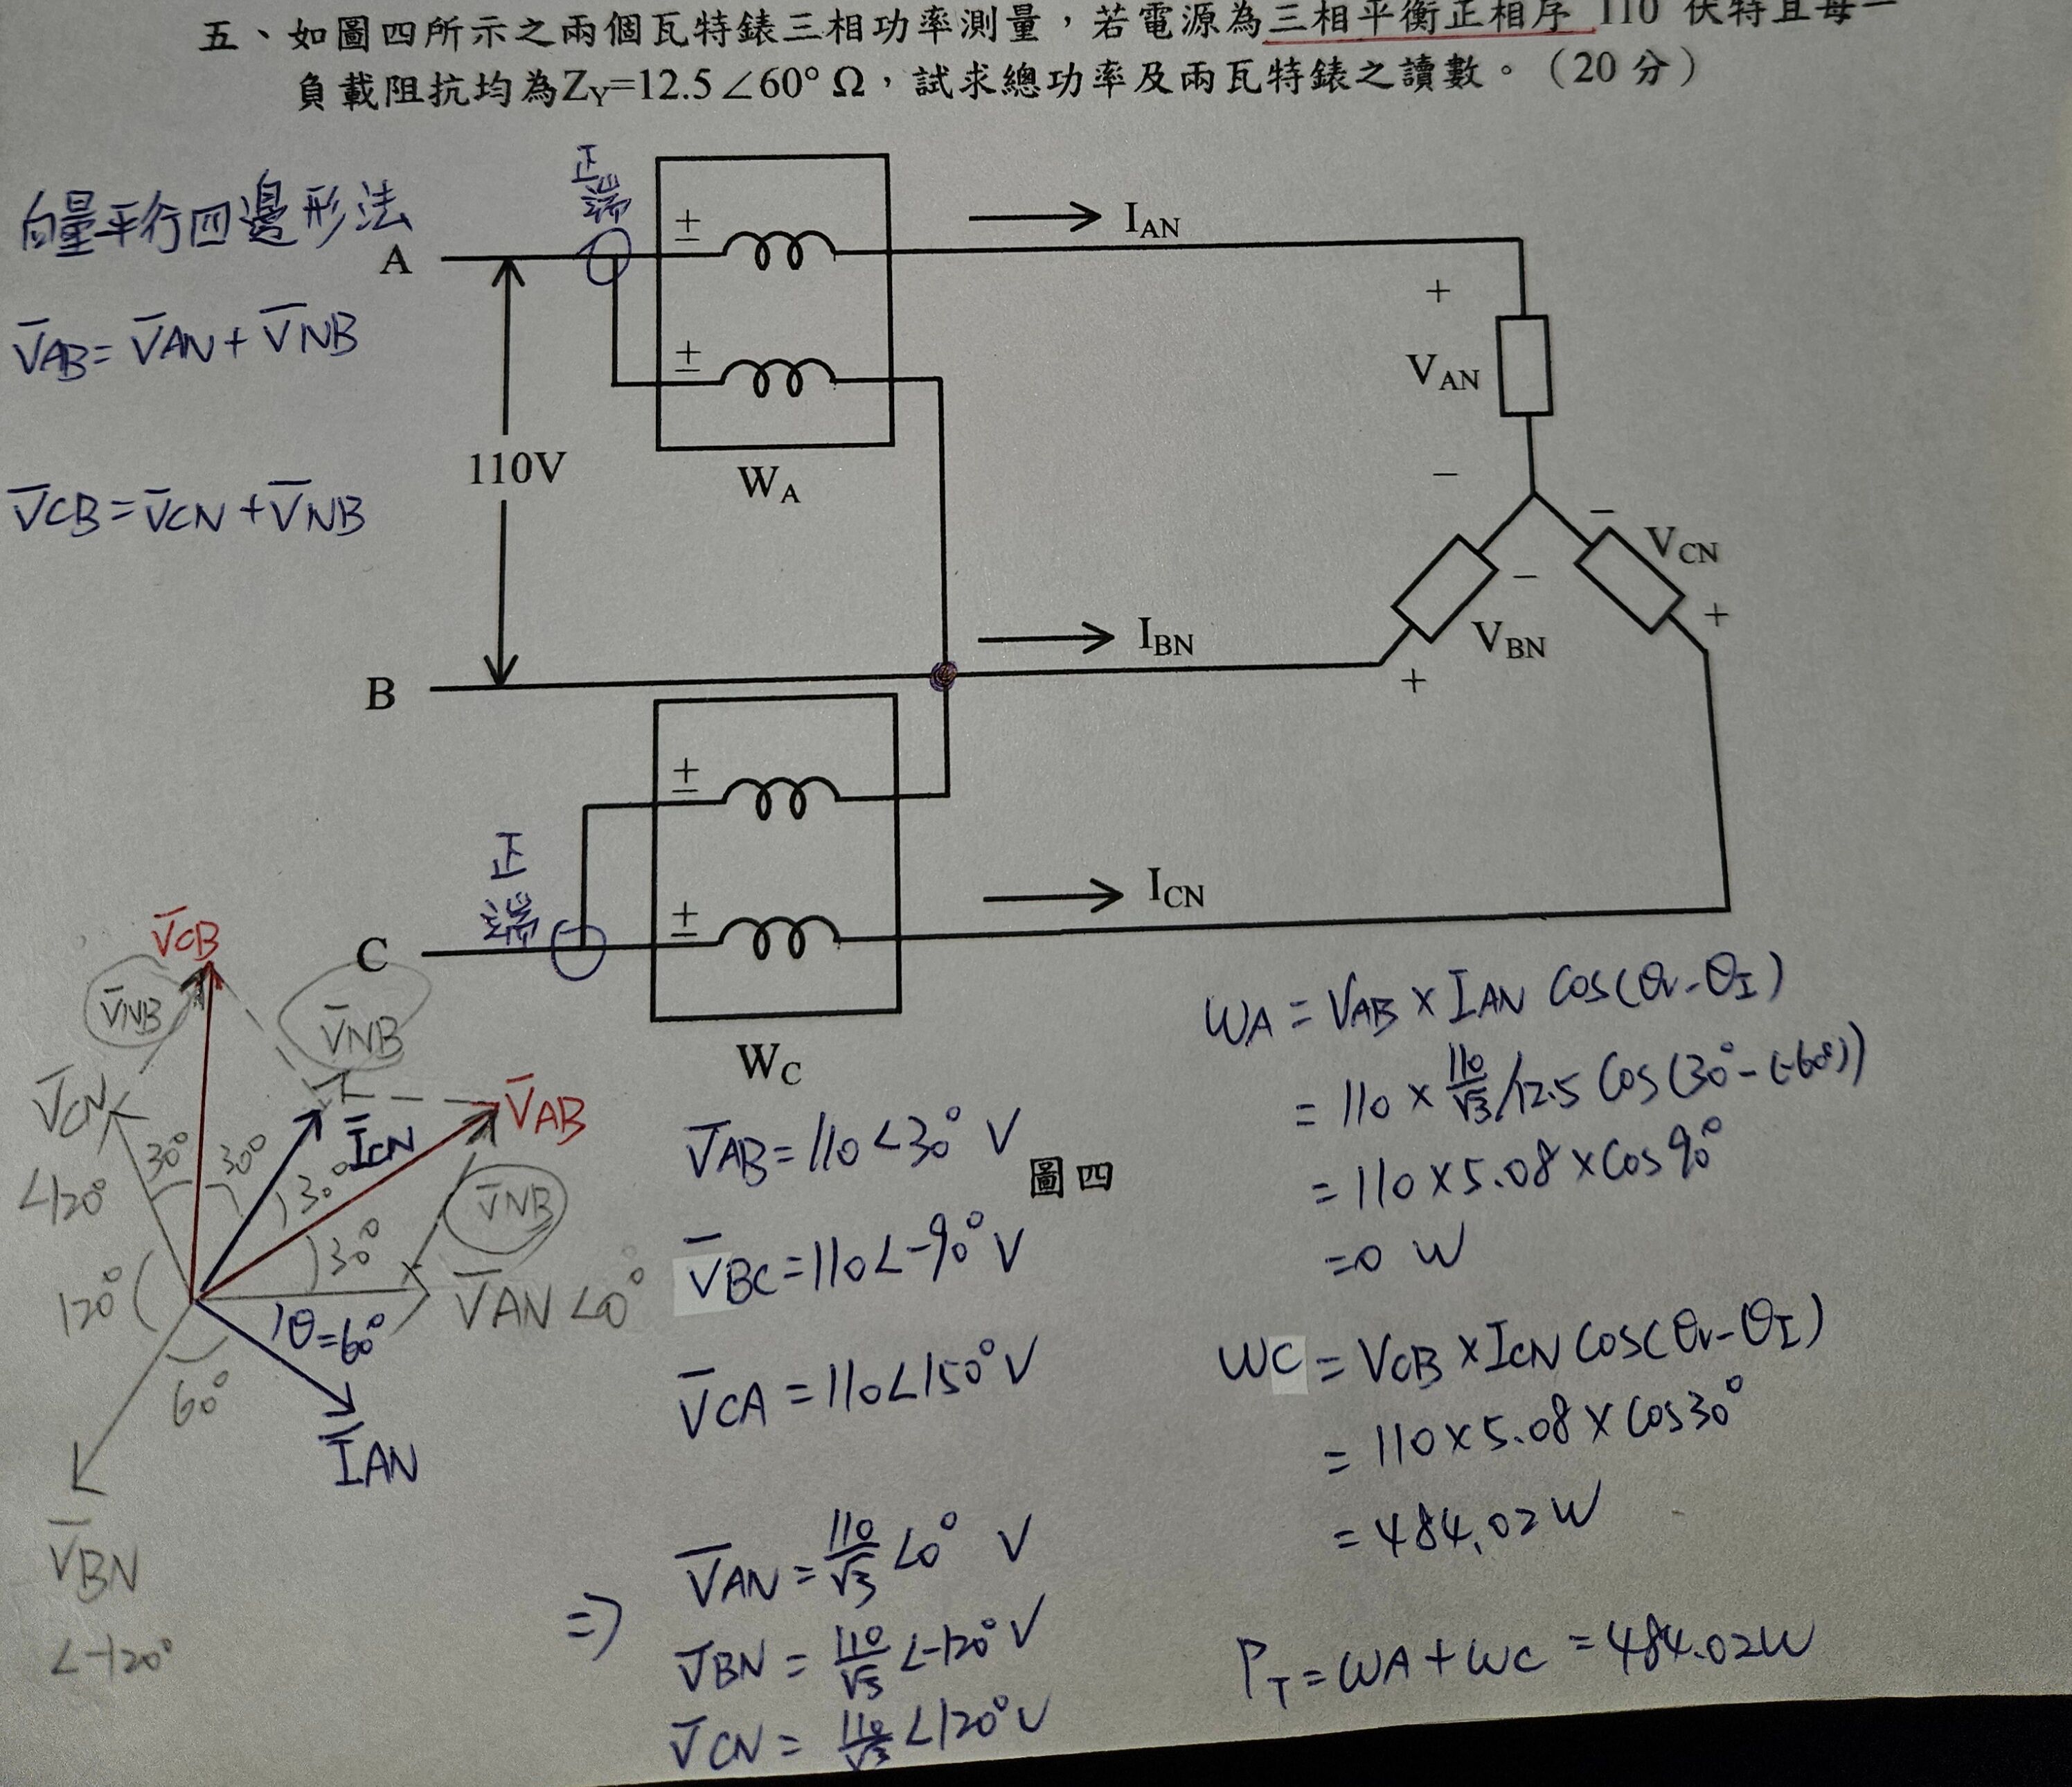 五、如圖四所示之兩個瓦特錶三相功率測量，若電源為三相平衡正相序 110 伏特且每一
負載阻抗均為Z_Y=12.5∠60° Ω，試求總功率及兩瓦特錶之讀數。（20 分）
向量平行四邊形法
V̅AB = V̅AN + V̅NB
V̅CB = V̅CN + V̅NB
正端
A
±
±
I_AN
+
V_AN
−
110V
W_A
B
I_BN
−
V_CN
+
−
V_BN
+
±
±
正端
C
I_CN
W_C
圖四
V̅CB
V̅NB
V̅NB
V̅CN
∠120°
30°
30°
I̅CN
30°
V̅AB
V̅NB
30°
120°
V̅AN ∠0°
θ=60°
60°
I̅AN
V̅BN
∠-120°
V̅AB = 110∠30° V
V̅BC = 110∠-90° V
V̅CA = 110∠150° V
⇒
V̅AN = 110/√3 ∠0° V
V̅BN = 110/√3 ∠-120° V
V̅CN = 110/√3 ∠120° V
WA = VAB × IAN cos(θv-θI)
= 110 × 110/√3 /12.5 cos(30°-(-60°))
= 110 × 5.08 × cos 90°
= 0 W
WC = VCB × ICN cos(θv-θI)
= 110 × 5.08 × cos30°
= 484.02W
PT = WA + WC = 484.02W